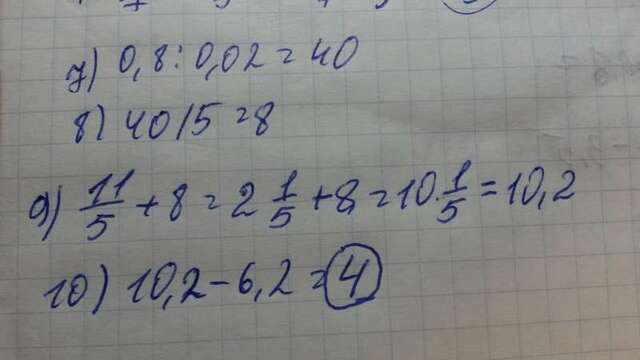 7) 0,8 : 0,02 = 40
8) 40/5 = 8
9) 11/5 + 8 = 2 1/5 + 8 = 10 1/5 = 10,2
10) 10,2 - 6,2 = 4